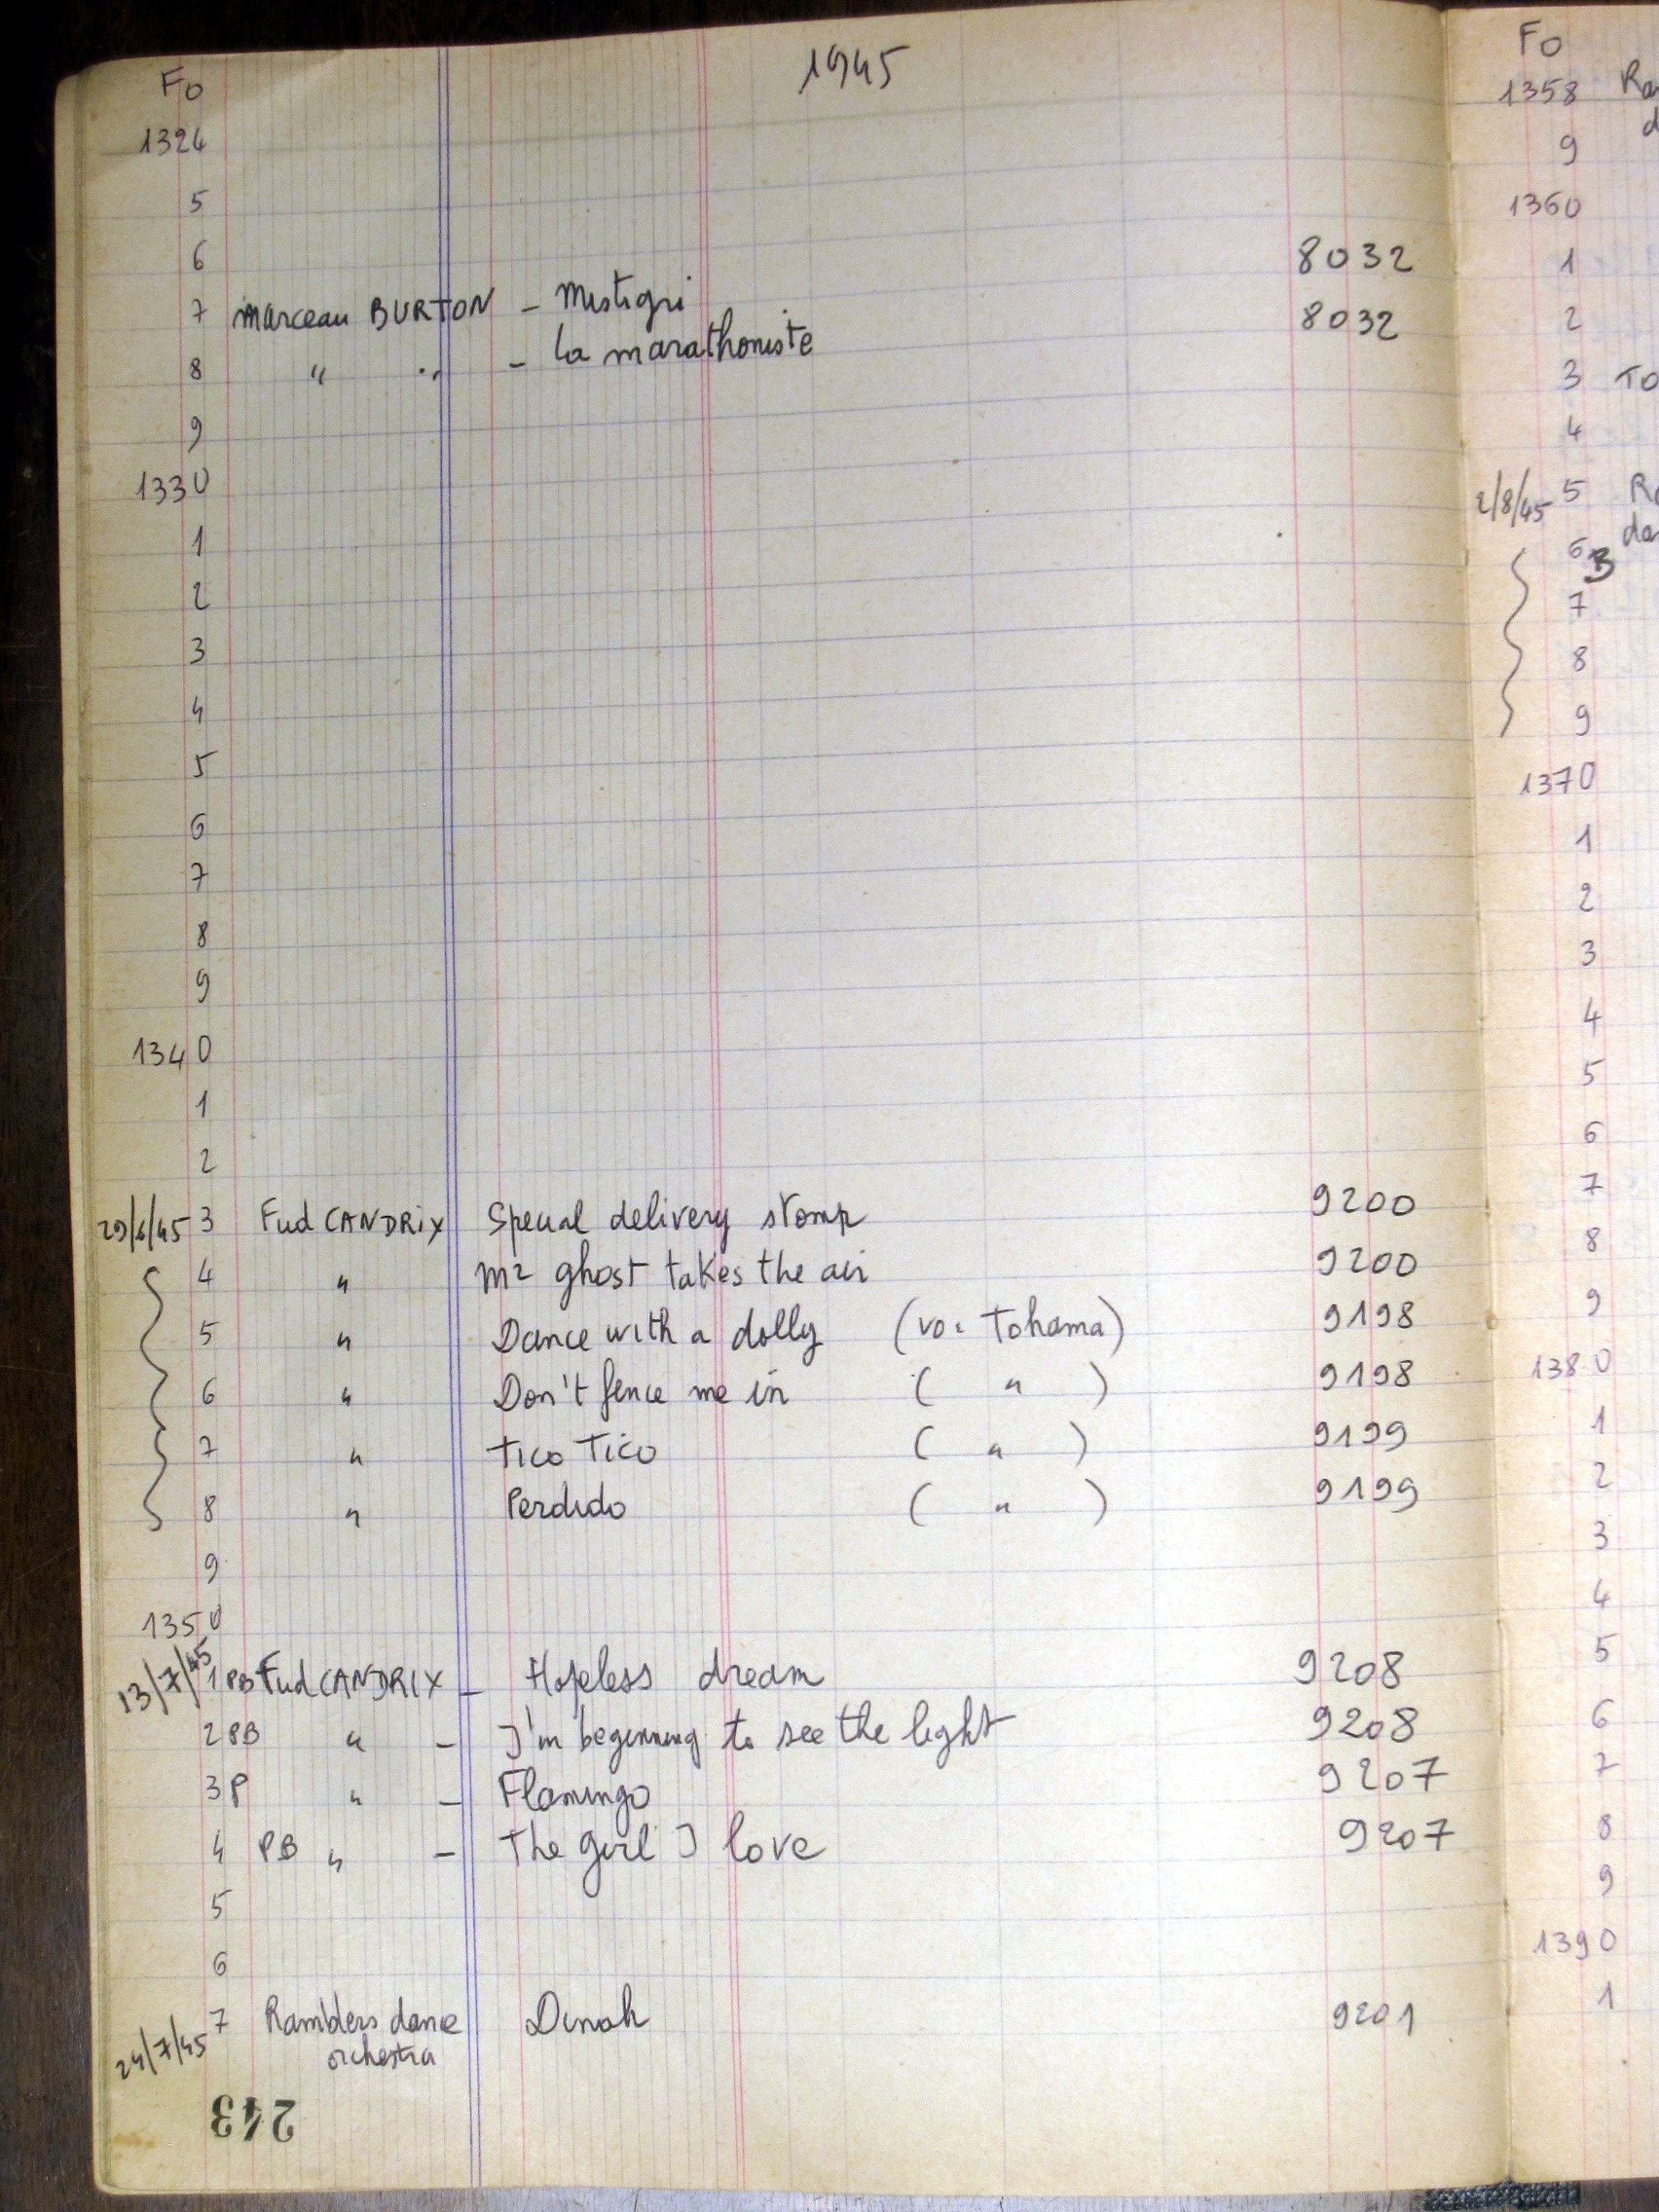 1945
Fo
1324
5
6
7 Marceau BURTON - Mistigri 8032
8 " " - la marathoniste 8032
9
1330
1
2
3
4
5
6
7
8
9
1340
1
2
29/6/45 3 Fud CANDRIX Special delivery stomp 9200
4 " Mr ghost takes the air 9200
5 " Dance with a dolly (vo: Tohama) 9198
6 " Don't fence me in ( " ) 9198
7 " Tico Tico ( " ) 9199
8 " Perdido ( " ) 9199
9
1350
13/7/45 1 PB Fud CANDRIX - Hopeless dream 9208
2 PB " - I'm beginning to see the light 9208
3 P " - Flamingo 9207
4 PB " - The girl I love 9207
5
6
24/7/45 7 Ramblers dance Dinah 9201
orchestra
243
Fo
1358
9
1360
1
2
3 TO
4
2/8/45 5
6 B
7
8
9
1370
1
2
3
4
5
6
7
8
9
1380
1
2
3
4
5
6
7
8
9
1390
1